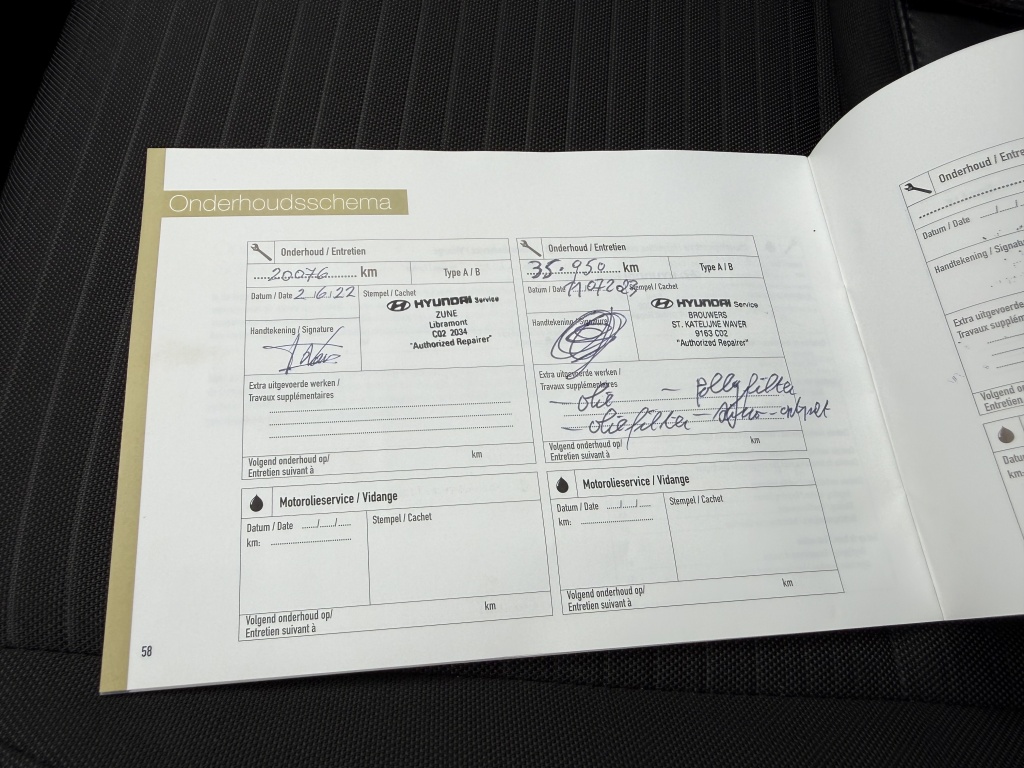 Onderhoudsschema
Onderhoud / Entretien
20076 km
Type A / B
Datum / Date 2.6.22
Stempel / Cachet
HYUNDAI Service
ZUNE
Libramont
C02 2034
"Authorized Repairer"
Handtekening / Signature
Extra uitgevoerde werken /
Travaux supplémentaires
Volgend onderhoud op/ km
Entretien suivant à
Onderhoud / Entretien
35.950 km
Type A / B
Datum / Date 11.07.2023
Stempel / Cachet
HYUNDAI Service
BROUWERS
ST. KATELIJNE WAVER
9163 C02
"Authorized Repairer"
Handtekening / Signature
Extra uitgevoerde werken /
Travaux supplémentaires
- olie - pollyfilter
- oliefilter -
Volgend onderhoud op/ km
Entretien suivant à
Motorolieservice / Vidange
Datum / Date ....../....../......
km:
Stempel / Cachet
Volgend onderhoud op/ km
Entretien suivant à
Motorolieservice / Vidange
Datum / Date ....../....../......
km:
Stempel / Cachet
Volgend onderhoud op/ km
Entretien suivant à
58
Onderhoud / Entre
Datum / Date
Handtekening / Signatur
Extra uitgevoerde
Travaux supplém
Volgend on
Entretien
Datu
km